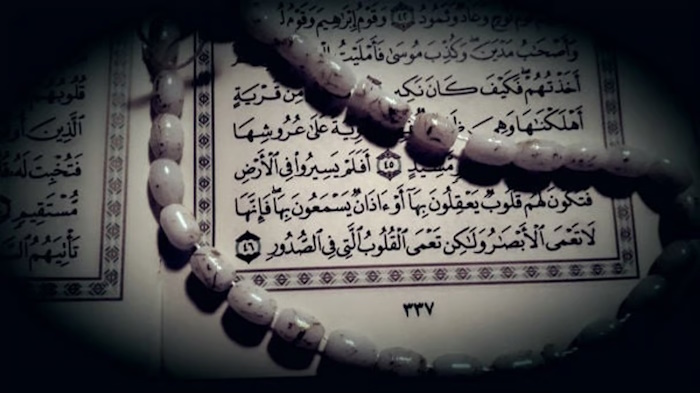 نُوحٍ وَعَادٌ وَثَمُودُ ٤٢ وَقَوْمُ إِبْرَٰهِيمَ وَقَوْمُ
وَأَصْحَٰبُ مَدْيَنَ ۖ وَكُذِّبَ مُوسَىٰ فَأَمْلَيْتُ
أَخَذْتُهُمْ ۖ فَكَيْفَ كَانَ مِّن قَرْيَةٍ
أَهْلَكْنَٰهَا وَهِىَ عَلَىٰ عُرُوشِهَا
٤٥ أَفَلَمْ يَسِيرُوا۟ فِى ٱلْأَرْضِ
فَتَكُونَ لَهُمْ قُلُوبٌ يَعْقِلُونَ بِهَآ أَوْ ءَاذَانٌ يَسْمَعُونَ بِهَا ۖ فَإِنَّهَا
لَا تَعْمَى ٱلْأَبْصَٰرُ وَلَٰكِن تَعْمَى ٱلْقُلُوبُ ٱلَّتِى فِى ٱلصُّدُورِ ٤٦
٣٣٧
قُلُوبُهُمْ
ٱلَّذِينَ
فَتُخْبِتَ لَهُۥ
مُّسْتَقِيمٍ
تَأْتِيَهُمُ